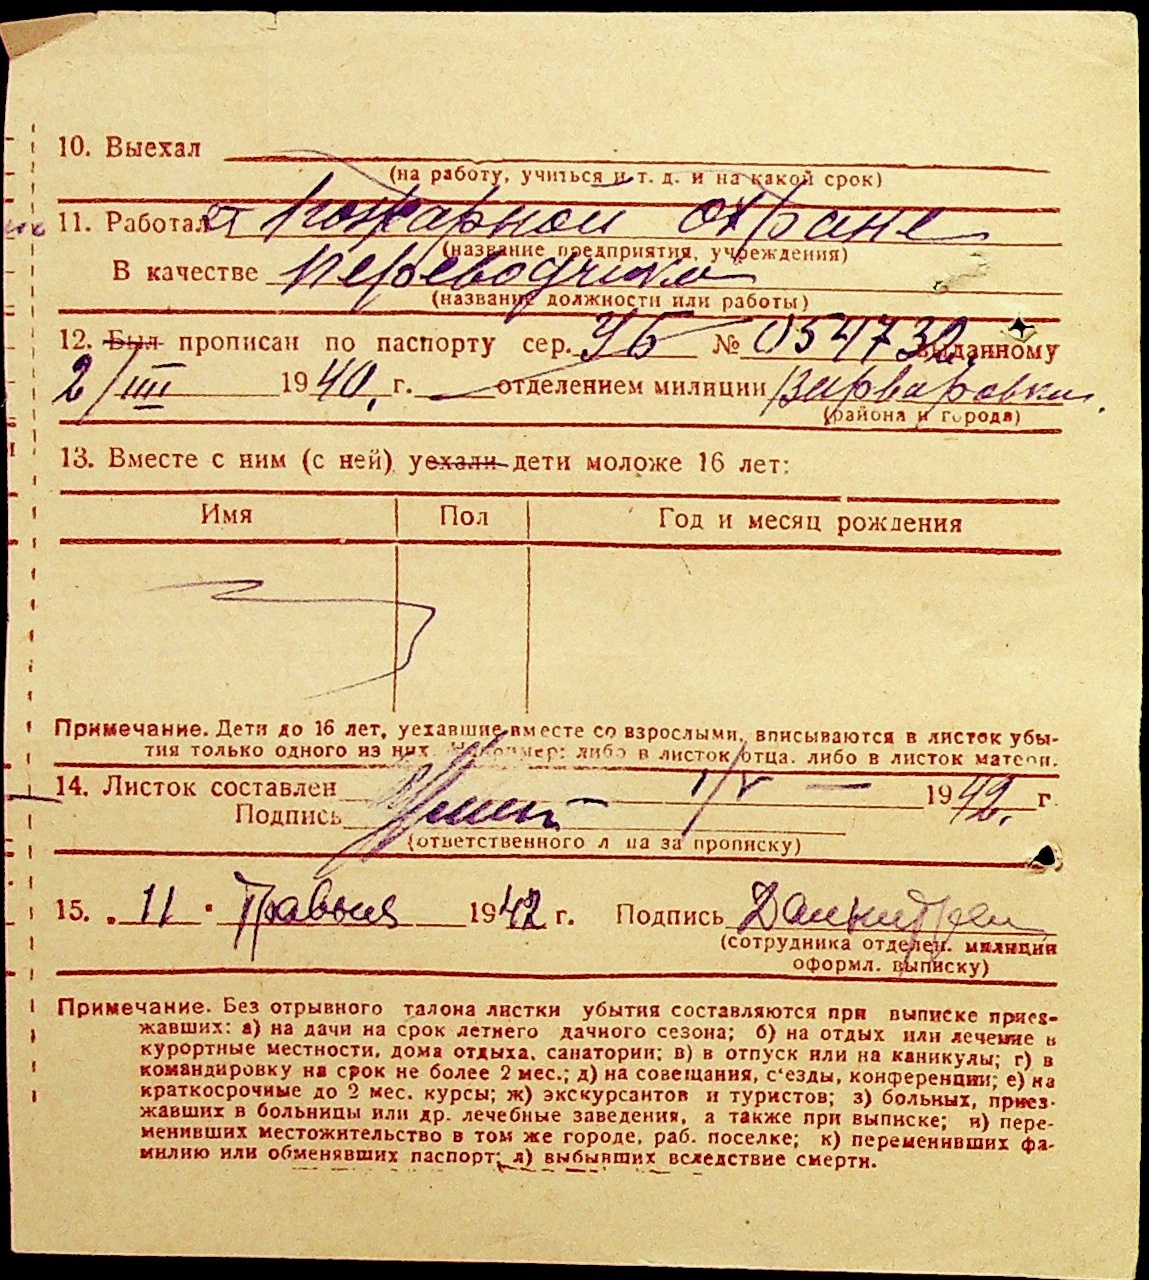 10. Выехал
(на работу, учиться и т. д. и на какой срок)
11. Работает пожарной охране
(название предприятия, учреждения)
В качестве переводчика
(название должности или работы)
12. Был прописан по паспорту сер. УБ № 054732 выданному
2/III 1940 г. отделением милиции Варваровки
(района и города)
13. Вместе с ним (с ней) уехали дети моложе 16 лет:
Имя Пол Год и месяц рождения
Примечание. Дети до 16 лет, уехавшие вместе со взрослыми, вписываются в листок убы-
тия только одного из них. Например: либо в листок отца, либо в листок матери.
14. Листок составлен 1/V - 1942 г.
Подпись
(ответственного лица за прописку)
15. „ 11 " травня 1942 г. Подпись
(сотрудника отделен. милиции
оформл. выписку)
Примечание. Без отрывного талона листки убытия составляются при выписке приез-
жавших: а) на дачи на срок летнего дачного сезона; б) на отдых или лечение в
курортные местности, дома отдыха, санатории; в) в отпуск или на каникулы; г) в
командировку на срок не более 2 мес.; д) на совещания, с'езды, конференции; е) на
краткосрочные до 2 мес. курсы; ж) экскурсантов и туристов; з) больных, приез-
жавших в больницы или др. лечебные заведения, а также при выписке; и) пере-
менивших местожительство в том же городе, раб. поселке; к) переменивших фа-
милию или обменявших паспорт; л) выбывших вследствие смерти.